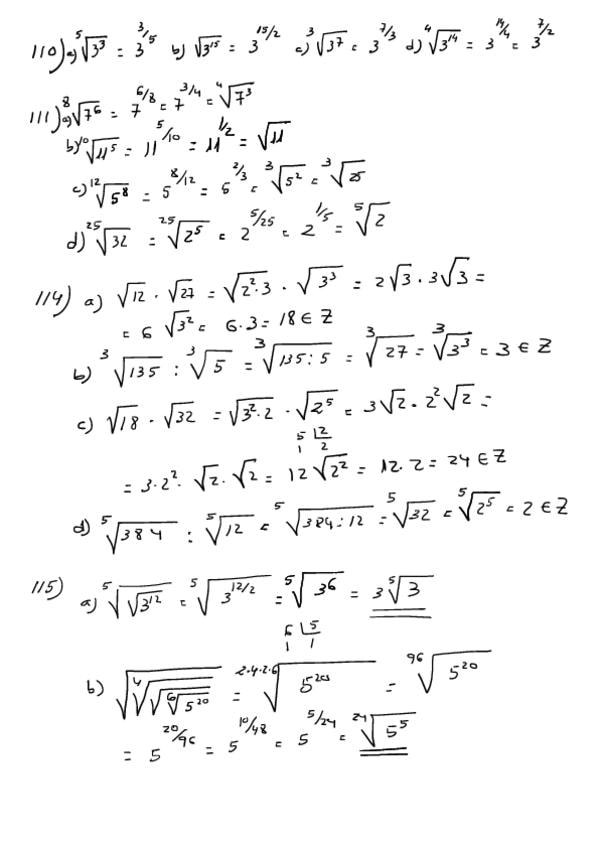 110) a) ⁵√3³ = 3^(3/5) b) √3¹⁵ = 3^(15/2) c) ³√3⁷ = 3^(7/3) d) ⁴√3¹⁴ = 3^(14/4) = 3^(7/2)
111) a) ⁸√7⁶ = 7^(6/8) = 7^(3/4) = ⁴√7³
b) ¹⁰√11⁵ = 11^(5/10) = 11^(1/2) = √11
c) ¹²√5⁸ = 5^(8/12) = 5^(2/3) = ³√5² = ³√25
d) ²⁵√32 = ²⁵√2⁵ = 2^(5/25) = 2^(1/5) = ⁵√2
114) a) √12 · √27 = √2²·3 · √3³ = 2√3 · 3√3 =
= 6 √3² = 6·3 = 18 ∈ Z
b) ³√135 : ³√5 = ³√135:5 = ³√27 = ³√3³ = 3 ∈ Z
c) √18 · √32 = √3²·2 · √2⁵ = 3√2 · 2²√2 =
5 2
1 2
= 3·2² · √2 · √2 = 12√2² = 12·2 = 24 ∈ Z
d) ⁵√384 : ⁵√12 = ⁵√384:12 = ⁵√32 = ⁵√2⁵ = 2 ∈ Z
115) a) ⁵√√3¹² = ⁵√3^(12/2) = ⁵√3⁶ = 3 ⁵√3
6 5
1 1
b) √⁴√√⁶√5²⁰ = ^(2·4·2·6)√5²⁰ = ⁹⁶√5²⁰
= 5^(20/96) = 5^(10/48) = 5^(5/24) = ²⁴√5⁵